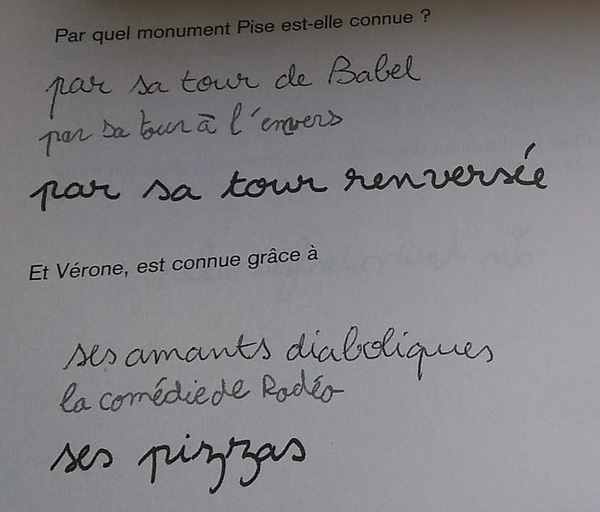 Par quel monument Pise est-elle connue ?
par sa tour de Babel
par sa tour à l'envers
par sa tour renversée
Et Vérone, est connue grâce à
ses amants diaboliques
la comédie de Rodéo
ses pizzas